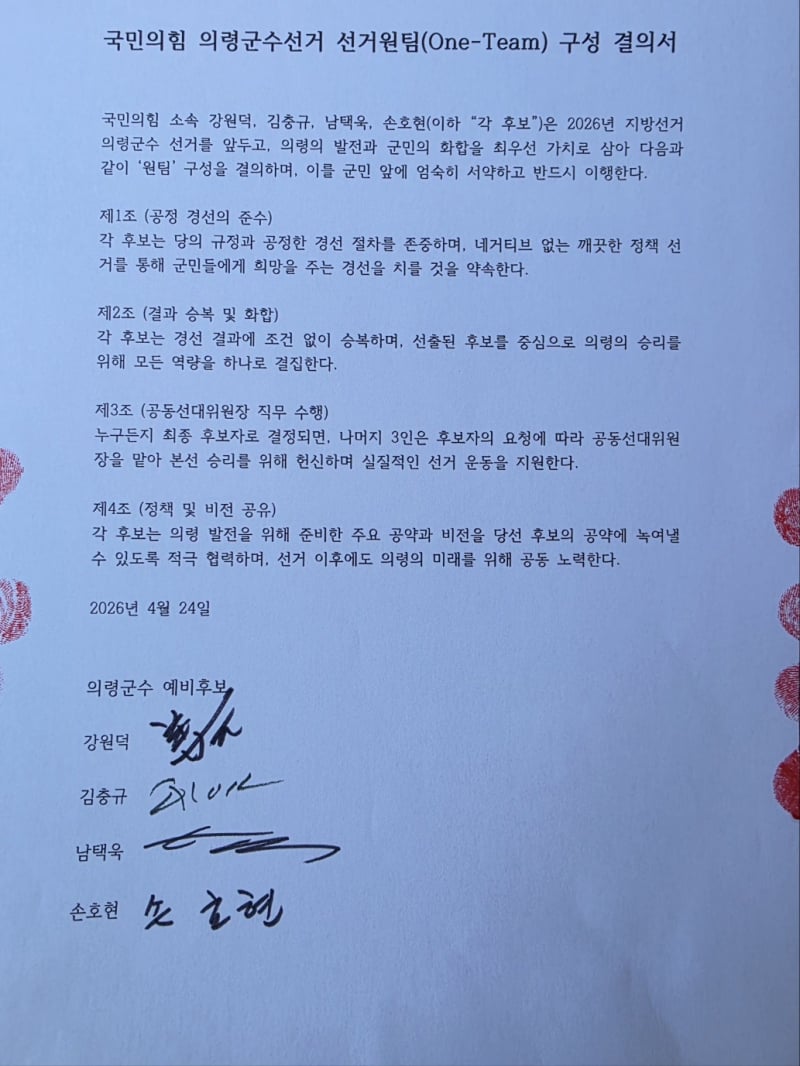 국민의힘 의령군수선거 선거원팀(One-Team) 구성 결의서
국민의힘 소속 강원덕, 김충규, 남택욱, 손호현(이하 “각 후보”)은 2026년 지방선거
의령군수 선거를 앞두고, 의령의 발전과 군민의 화합을 최우선 가치로 삼아 다음과
같이 ‘원팀’ 구성을 결의하며, 이를 군민 앞에 엄숙히 서약하고 반드시 이행한다.
제1조 (공정 경선의 준수)
각 후보는 당의 규정과 공정한 경선 절차를 존중하며, 네거티브 없는 깨끗한 정책 선
거를 통해 군민들에게 희망을 주는 경선을 치를 것을 약속한다.
제2조 (결과 승복 및 화합)
각 후보는 경선 결과에 조건 없이 승복하며, 선출된 후보를 중심으로 의령의 승리를
위해 모든 역량을 하나로 결집한다.
제3조 (공동선대위원장 직무 수행)
누구든지 최종 후보자로 결정되면, 나머지 3인은 후보자의 요청에 따라 공동선대위원
장을 맡아 본선 승리를 위해 헌신하며 실질적인 선거 운동을 지원한다.
제4조 (정책 및 비전 공유)
각 후보는 의령 발전을 위해 준비한 주요 공약과 비전을 당선 후보의 공약에 녹여낼
수 있도록 적극 협력하며, 선거 이후에도 의령의 미래를 위해 공동 노력한다.
2026년 4월 24일
의령군수 예비후보
강원덕
김충규
남택욱
손호현 손호현